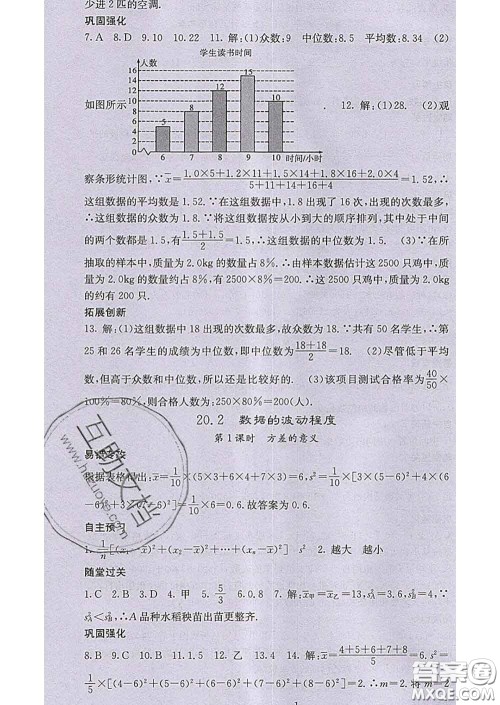 少进2匹的空调.
巩固强化
7. A 8. D 9. 10 10. 22 11. 解:(1)众数:9 中位数:8.5 平均数:8.34 (2)
学生读书时间
人数
16
14
12
10
8
6
4
2
0
5 8 12 15 10
6 7 8 9 10 时间/小时
如图所示 . 12. 解:(1)28. (2)观
察条形统计图,∵x̄=(1.0×5+1.2×11+1.5×14+1.8×16+2.0×4)/(5+11+14+16+4)=1.52,∴
这组数据的平均数是1.52.∵在这组数据中,1.8出现了16次,出现的次数最多,
∴这组数据的众数为1.8.∵将这组数据按从小到大的顺序排列,其中处于中间
的两个数都是1.5,有(1.5+1.5)/2=1.5,∴这组数据的中位数为1.5. (3)∵在所
抽取的样本中,质量为2.0kg的数量占8%,∴由样本数据估计这2500只鸡中,质
量为2.0kg的数量约占8%,有2500×8%=200.∴这2500只鸡中,质量为2.0kg
的约有200只.
拓展创新
13. 解:(1)这组数据中18出现的次数最多,故众数为18.∵共有50名学生,∴第
25和26名学生的成绩为中位数,即中位数为(18+18)/2=18. (2)尽管低于平均
数,但高于众数和中位数,所以还是比较好的. (3)该项目测试合格率为40/50×
100%=80%,则合格人数为:250×80%=200(人).
20.2 数据的波动程度
第1课时 方差的意义
根据表格得出:x̄=1/10×(5×3+6×4+7×3)=6,s²=1/10×[3×(5-6)²+4×(6
-6)²+3×(7-6)²]=1/10×6=0.6.故答案为0.6.
自主预习
1. 1/n[(x₁-x̄)²+(x₂-x̄)²+…+(xₙ-x̄)²] s² 2. 越大 越小
随堂过关
1. C 2. B 3. D 4. 甲 5. 5/3 6. 0.8 7. 解:∵x̄甲=x̄乙=13,s²A=3.6,s²B=4,∵
s²A<s²B,∴A品种水稻秧苗出苗更整齐.
巩固强化
8. B 9. C 10. B 11. 1.5 12. 乙 13. 4 14. 解:x̄=(4+5+6+7+8)/5=6,s²=
1/5×[(4-6)²+(5-6)²+(6-6)²+(7-6)²+(8-6)²]=2.∴m=2.将m=2
互助文档
答案圈
MXQE.COM